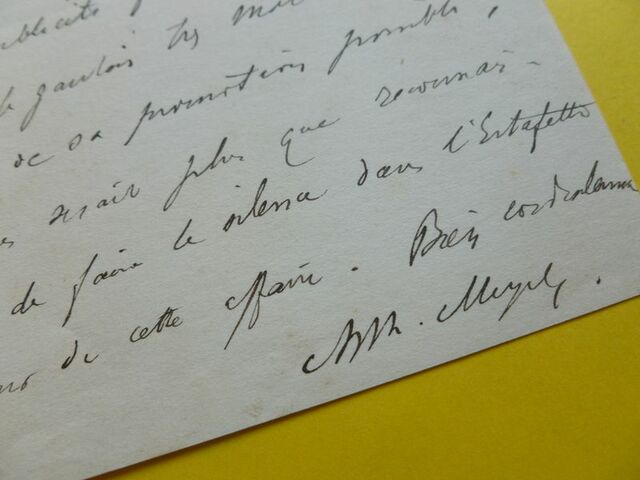 publicité
le gaulois très mal
de sa promotion possible,
serait plus que reconnais-
de faire le silence dans l'Estafette
de cette affaire. Bien cordialement
Arth. Meyer.